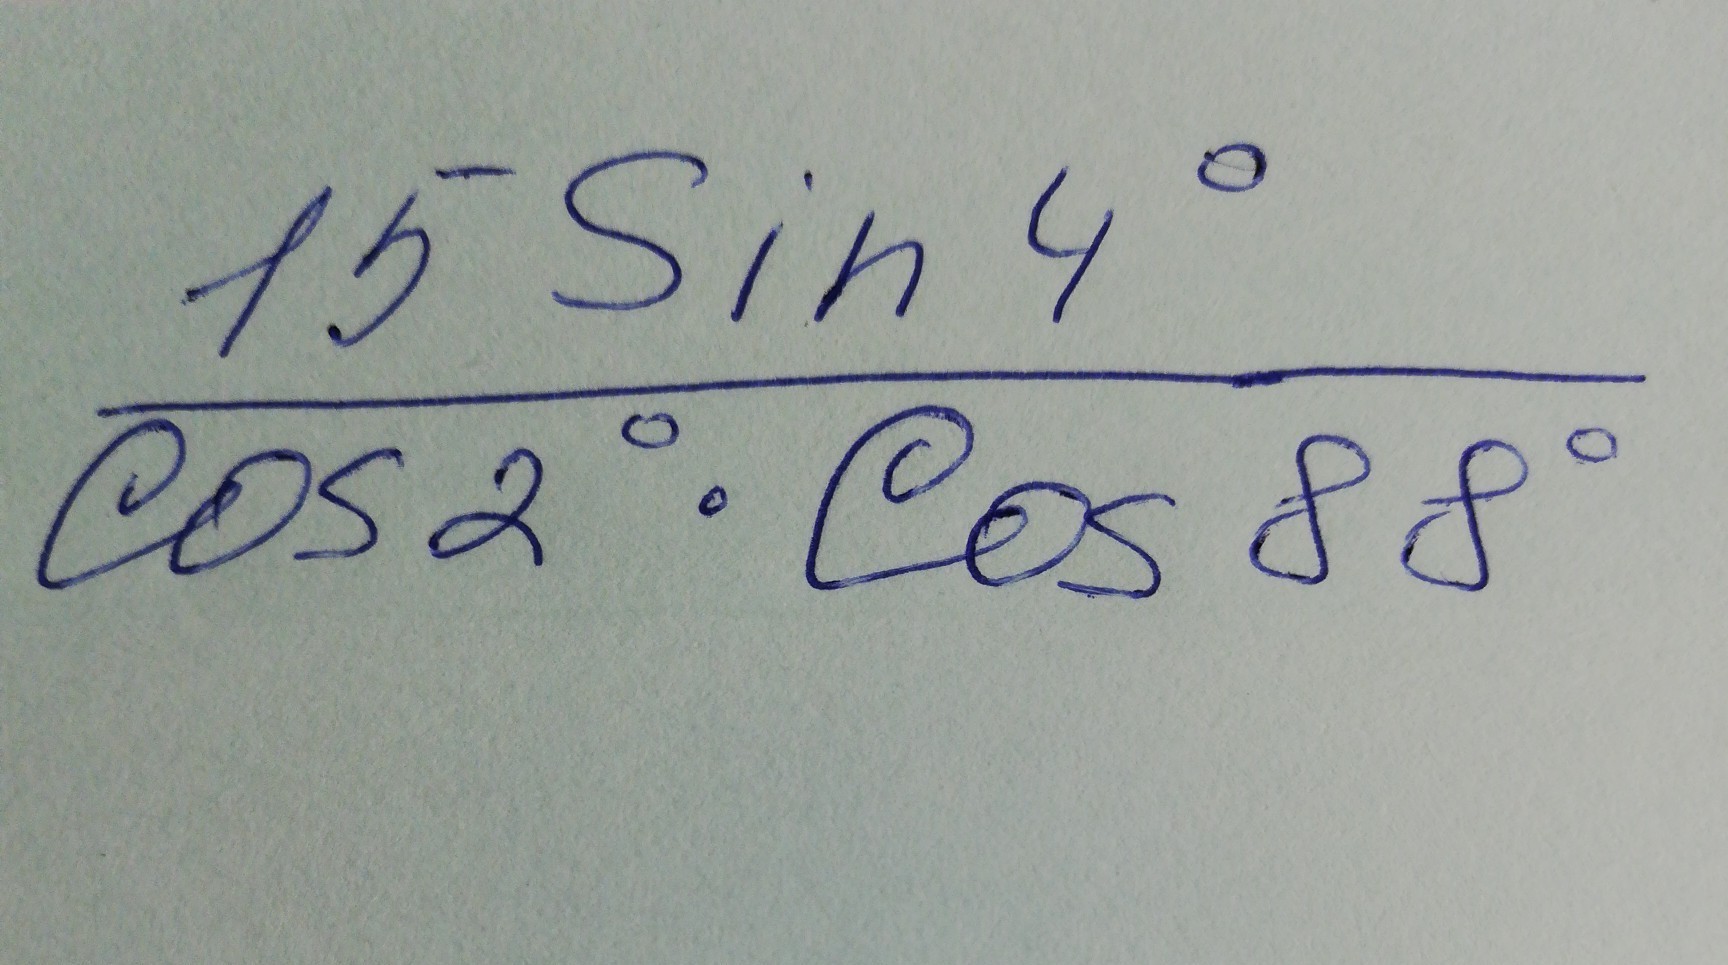 15 Sin 4°
Cos 2° · Cos 88°